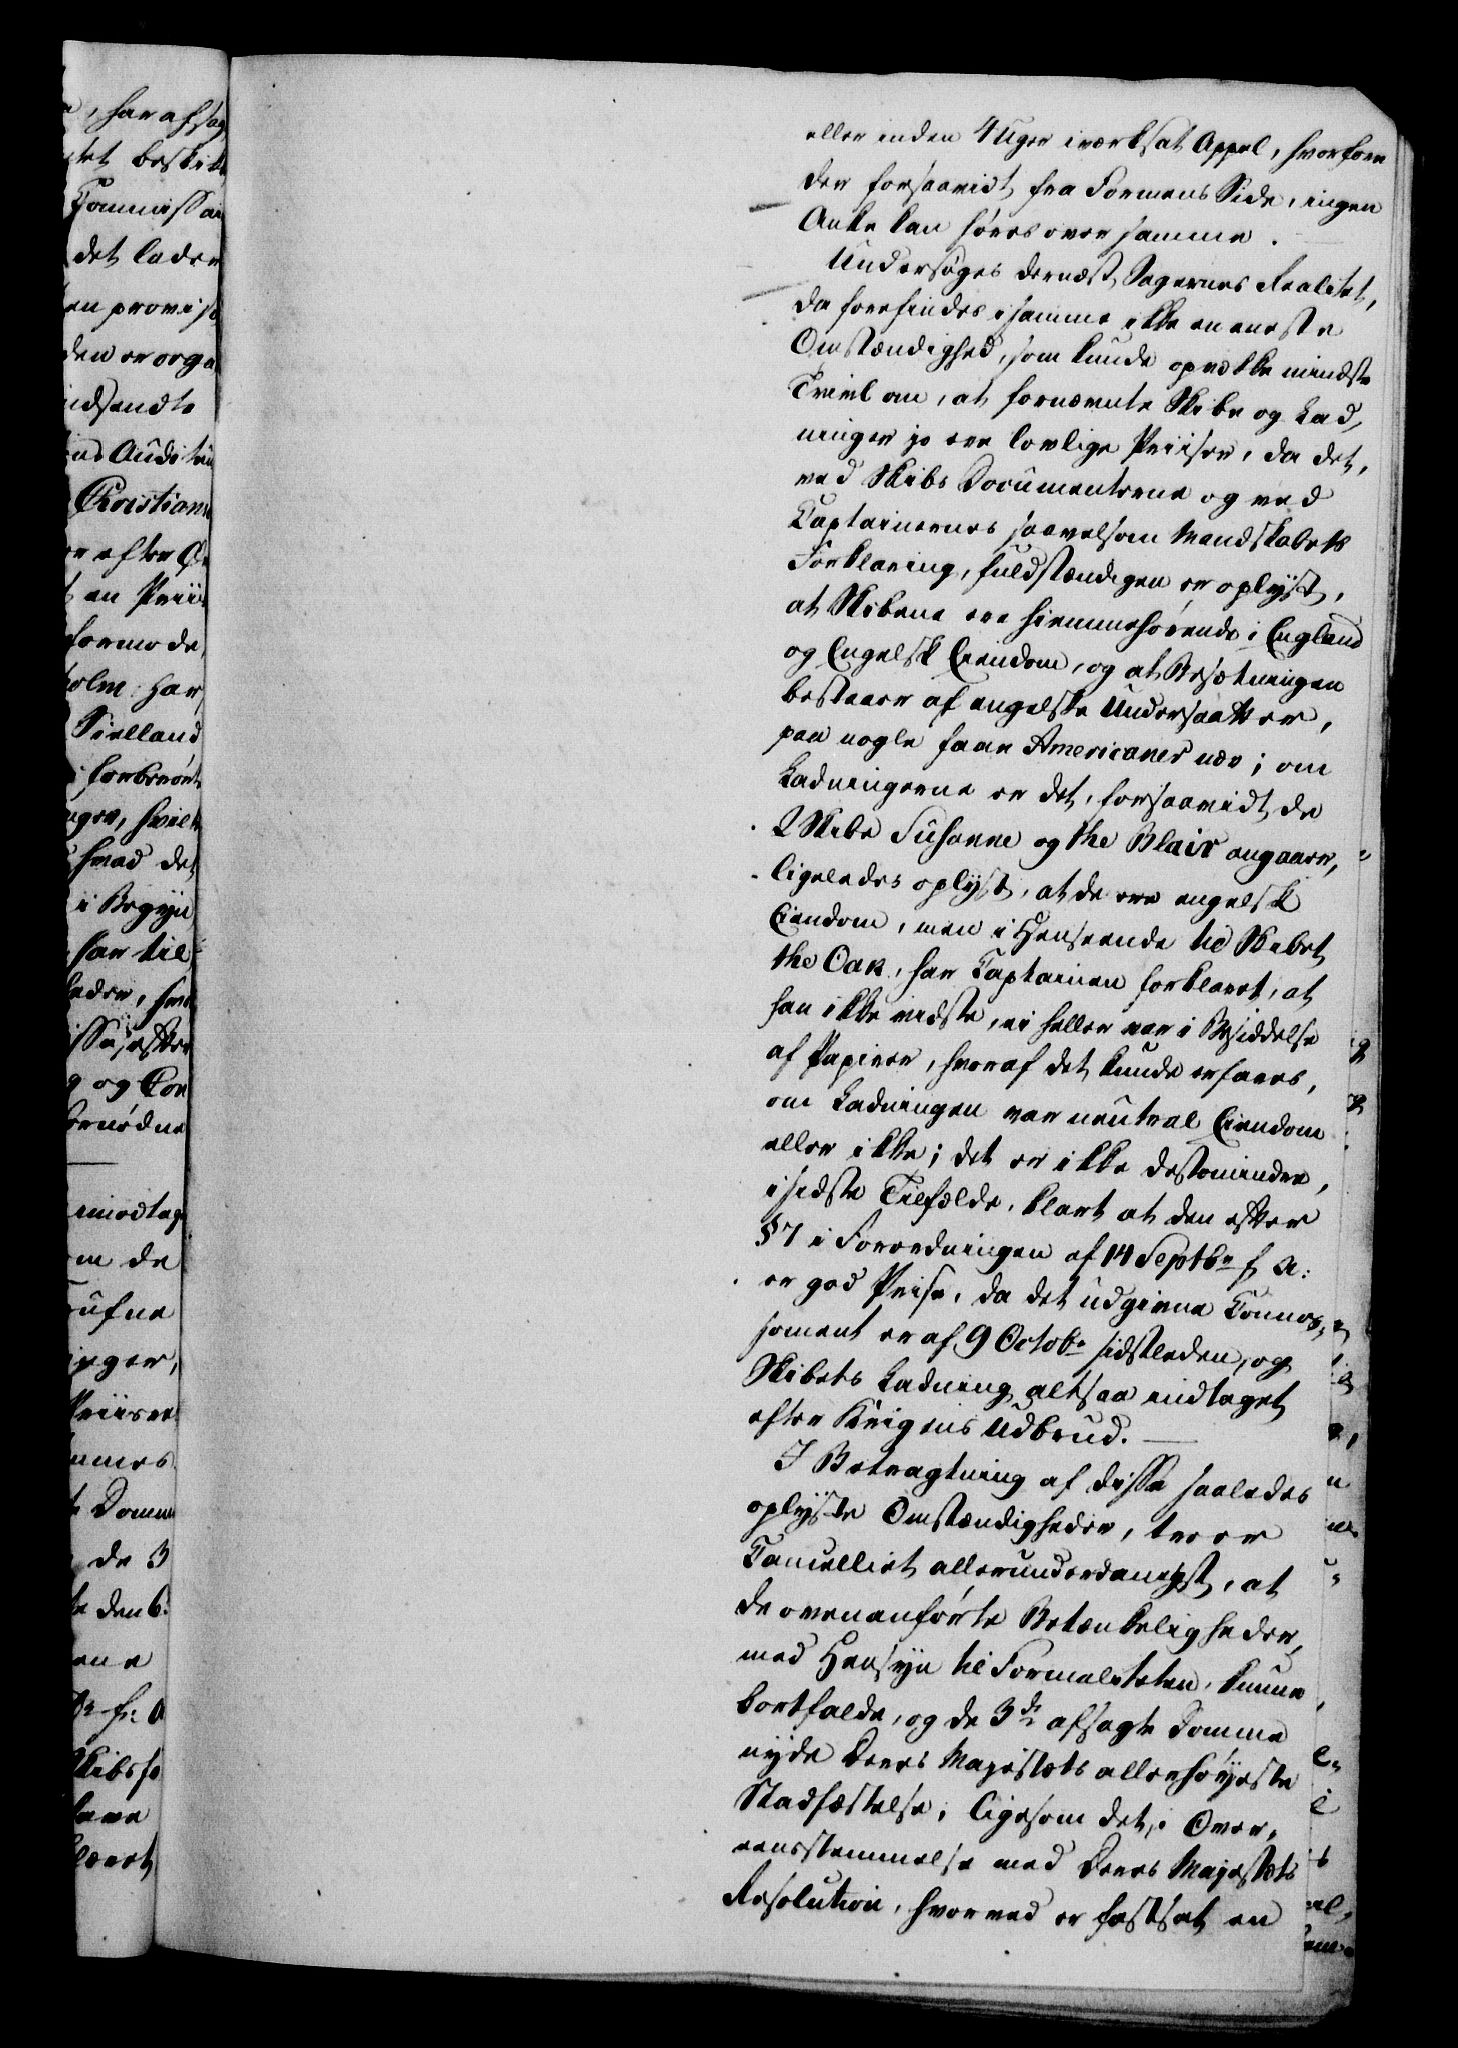 eller inden 4 Uger iværksat Appel, hvorfore
der forsaavidt fra Formens Side, ingen
Anke kan høres over samme.
Undersøges dernæst Sagernes Realitet,
da forefindes i samme ikke en eneste
Omstændighed, som kunde opvække mindste
Tvivl om, at fornævnte Skibe og Lad,
ninger jo ere lovlige Priiser, da det,
ved Skibs Documenterne og ved
Captainernes saavelsom Mandskabets
Forklaring, fuldstændigen er oplyst,
at Skibene ere hiemmehørende i England
og Engelsk Eiendom, og at Besætningen
bestaaer af engelske Undersaatter,
paa nogle faae Americaner nær; om
Ladningerne er det, forsaavidt de
2 Skibe Susanne og the Blair angaaer,
ligeledes oplyst, at de ere engelsk
Eiendom, men i Henseende til Skibet
the Oak, har Captainen forklaret, at
han ikke vidste, ei heller var i Besiddelse
af Papirer, hvoraf det kunde erfares,
om Ladningen var neutral Eiendom
eller ikke; det er ikke destomindre,
i sidste Tilfælde, klart at den efter
§ 7 i Forordningen af 14 Septbr f. A:
er god Prise, da det udgivne Connos,
sement er af 9 Octobr sidstleden, og
Skibets Ladning altsaa indtaget
efter Krigens Udbrud.
I Betragtning af disse saaledes
oplyste Omstændigheder, troer
Cancelliet allerunderdanigst, at
de ovenanførte Betænkeligheder,
med Hensyn til Formaliteten, kunne
bortfalde, og de 3de afsagte Domme
nyde Deres Majestæts allerhøyeste
Stadfæstelse, ligesom det, i Over,
eensstemmelse med Deres Majestæts
Resolution, hvorved er fastsat en